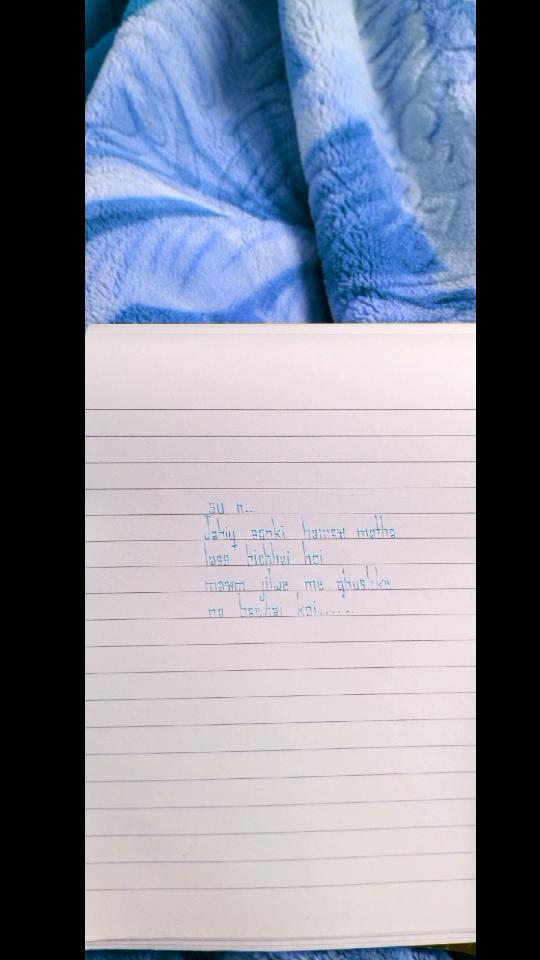 su n...
Jahiy sanki hamaw matha
lass bichhai hoi
mawm jilwe me ghushke
na bachai koi......